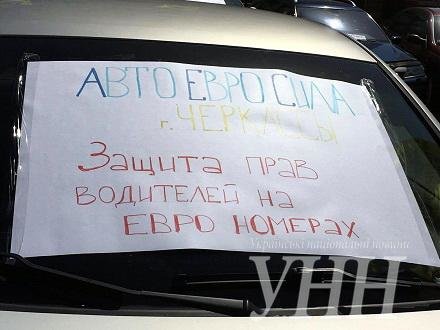 АВТО ЕВРО СИЛА
г. ЧЕРКАССЫ
Защита прав
водителей на
ЕВРО НОМЕРАХ
Українські національні новини
УНН